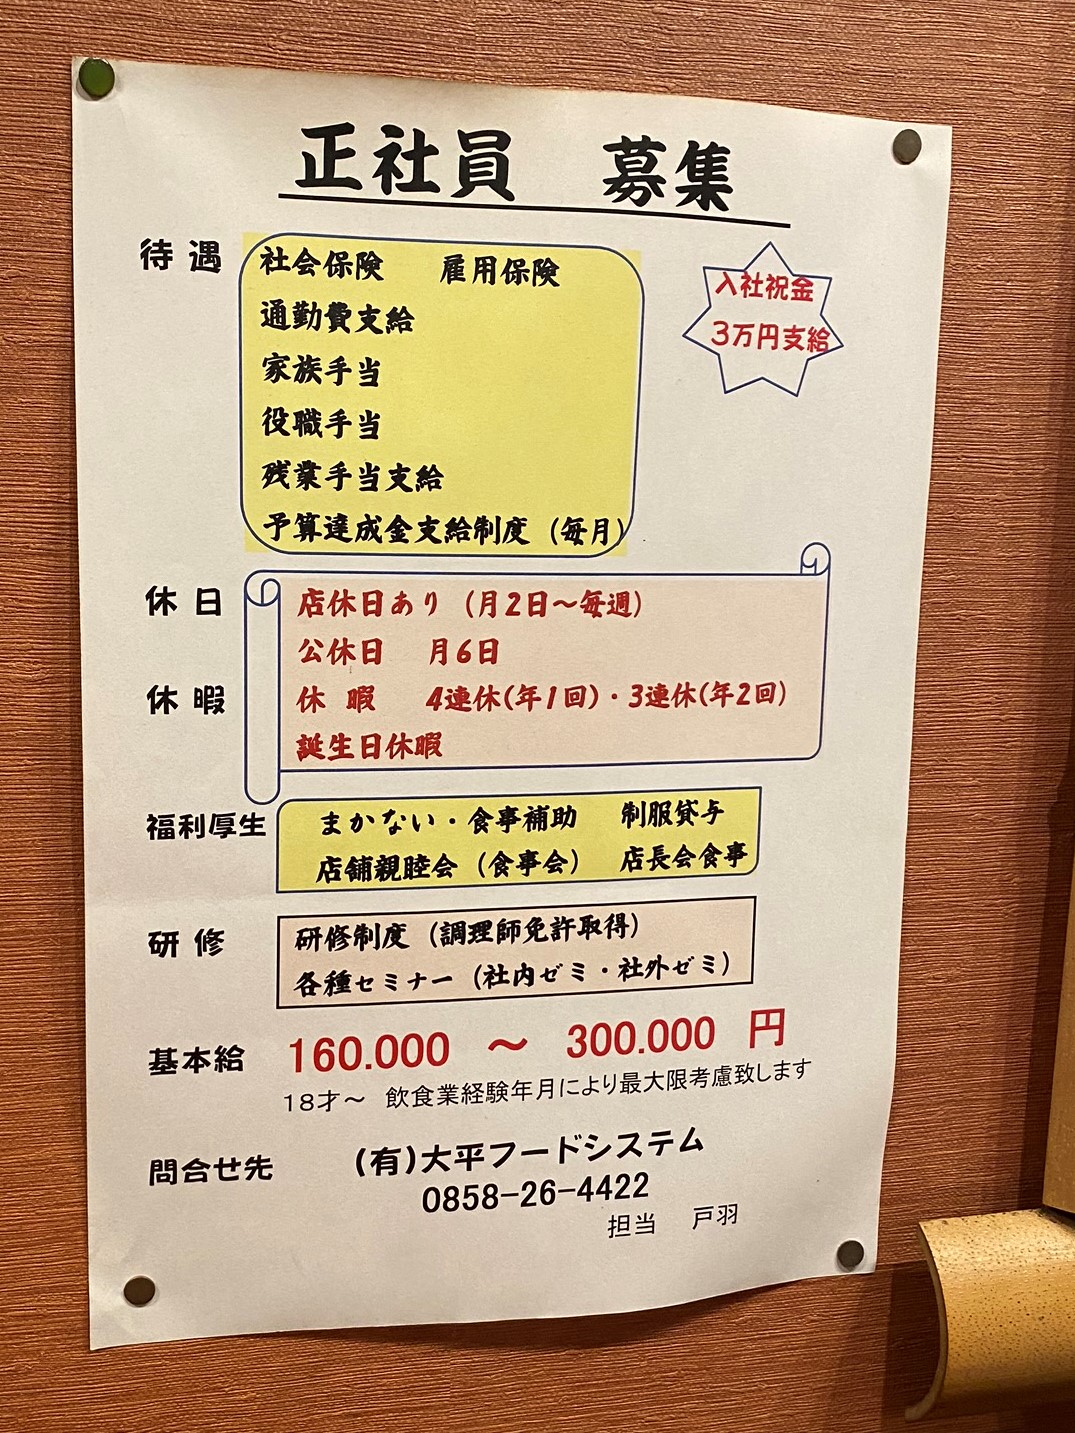 正社員　募集
待遇
社会保険　雇用保険
通勤費支給
家族手当
役職手当
残業手当支給
予算達成金支給制度（毎月）
入社祝金
3万円支給
休日
店休日あり（月2日～毎週）
公休日　月6日
休暇
休暇　4連休(年1回)・3連休(年2回)
誕生日休暇
福利厚生
まかない・食事補助　制服貸与
店舗親睦会（食事会）　店長会食事
研修
研修制度（調理師免許取得）
各種セミナー（社内ゼミ・社外ゼミ）
基本給　160.000　～　300.000　円
18才～　飲食業経験年月により最大限考慮致します
問合せ先　(有)大平フードシステム
0858-26-4422
担当　戸羽